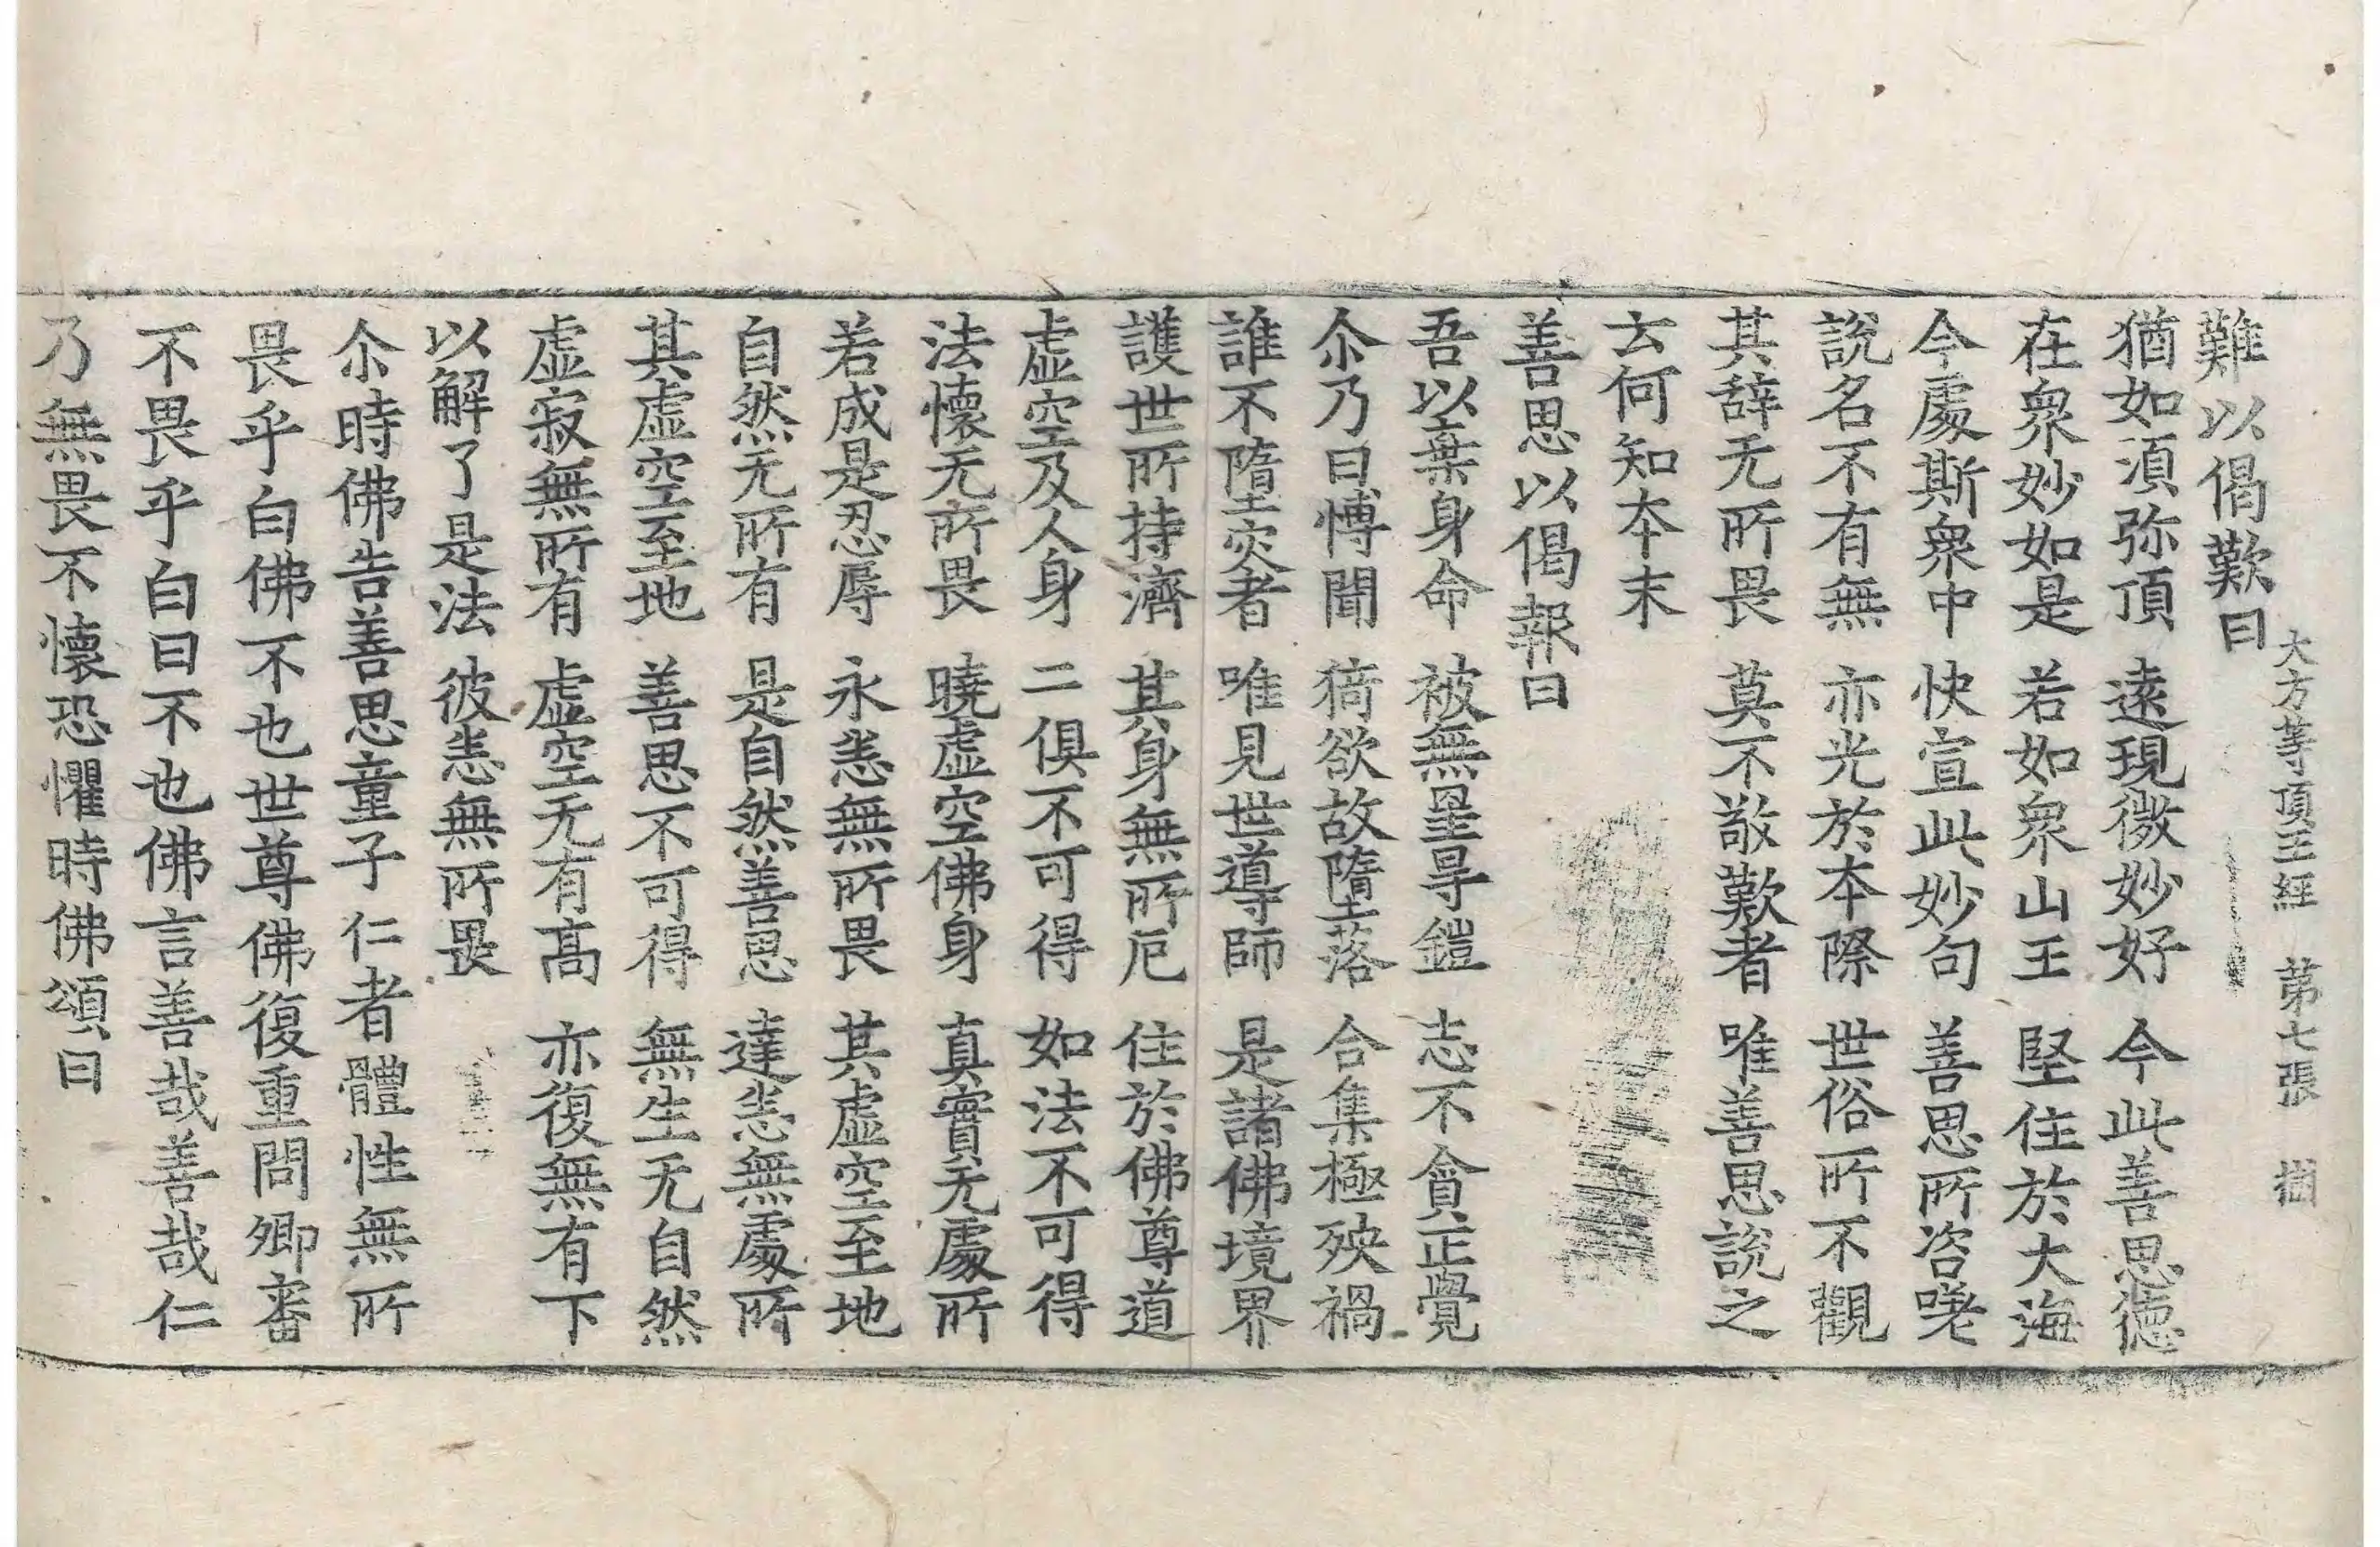 大方等頂王經 第七張 㒱
難以偈歎曰
猶如湏弥頂 遠現微妙好 今此善思德
在衆妙如是 若如衆山王 堅住於大海
今處斯衆中 快宣此妙句 善思所咨嗟
說名不有無 亦光於本際 世俗所不觀
其辞无所畏 莫不敬歎者 唯善思說之
云何知本末
善思以偈報曰
吾以棄身命 被無量㝵鎧 志不貪正覺
尒乃曰愽聞 猗欲故墮落 合集極殃禍
誰不墮灾者 唯見世導師 是諸佛境界
護世所持濟 其身無所厄 住於佛尊道
虛空及人身 二俱不可得 如法不可得
法懷无所畏 曉虛空佛身 真實无處所
若成是忍辱 永恙無所畏 其虛空至地
自然无所有 是自然善思 達恙無處所
其虛空至地 善思不可得 無生无自然
虛寂無所有 虛空无有高 亦復無有下
以解了是法 彼恙無所畏
尒時佛告善思童子仁者體性無所
畏乎白佛不也世尊佛復重問卿審
不畏乎白曰不也佛言善哉善哉仁
乃無畏不懷恐懼時佛頌曰